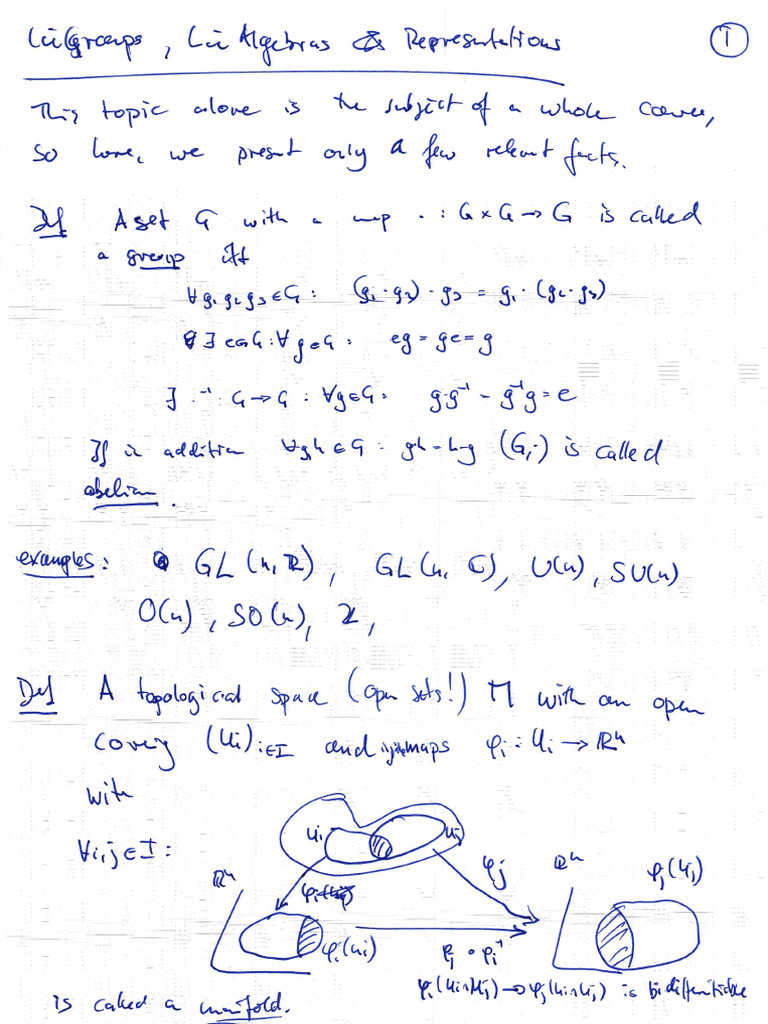 Lie Groups, Lie Algebras & Representations ①
This topic alone is the subject of a whole course,
so here, we present only a few relevant facts.
Def A set G with a map · : G × G → G is called
a group iff
∀ g₁ g₂ g₃ ∈ G : (g₁ · g₂) · g₃ = g₁ · (g₂ · g₃)
∃ e ∈ G : ∀ g ∈ G : eg = ge = g
∃ ·⁻¹ : G → G : ∀ g ∈ G : g·g⁻¹ = g⁻¹g = e
If in addition ∀ g,h ∈ G : g·h = h·g (G,·) is called
abelian.
examples: GL(n,ℝ), GL(n, ℂ), U(n), SU(n)
O(n), SO(n), ℤ,
Def A topological space (open sets!) M with an open
covering (Uᵢ)ᵢ∈I and maps φᵢ : Uᵢ → ℝⁿ
with
∀ i,j ∈ I :
Uᵢ Uⱼ
ℝⁿ φⱼ ℝⁿ φⱼ(Uⱼ)
φᵢ(Uᵢ) φⱼ ∘ φᵢ⁻¹
φᵢ(Uᵢ∩Uⱼ) → φⱼ(Uᵢ∩Uⱼ) is bidifferentiable
is called a manifold.